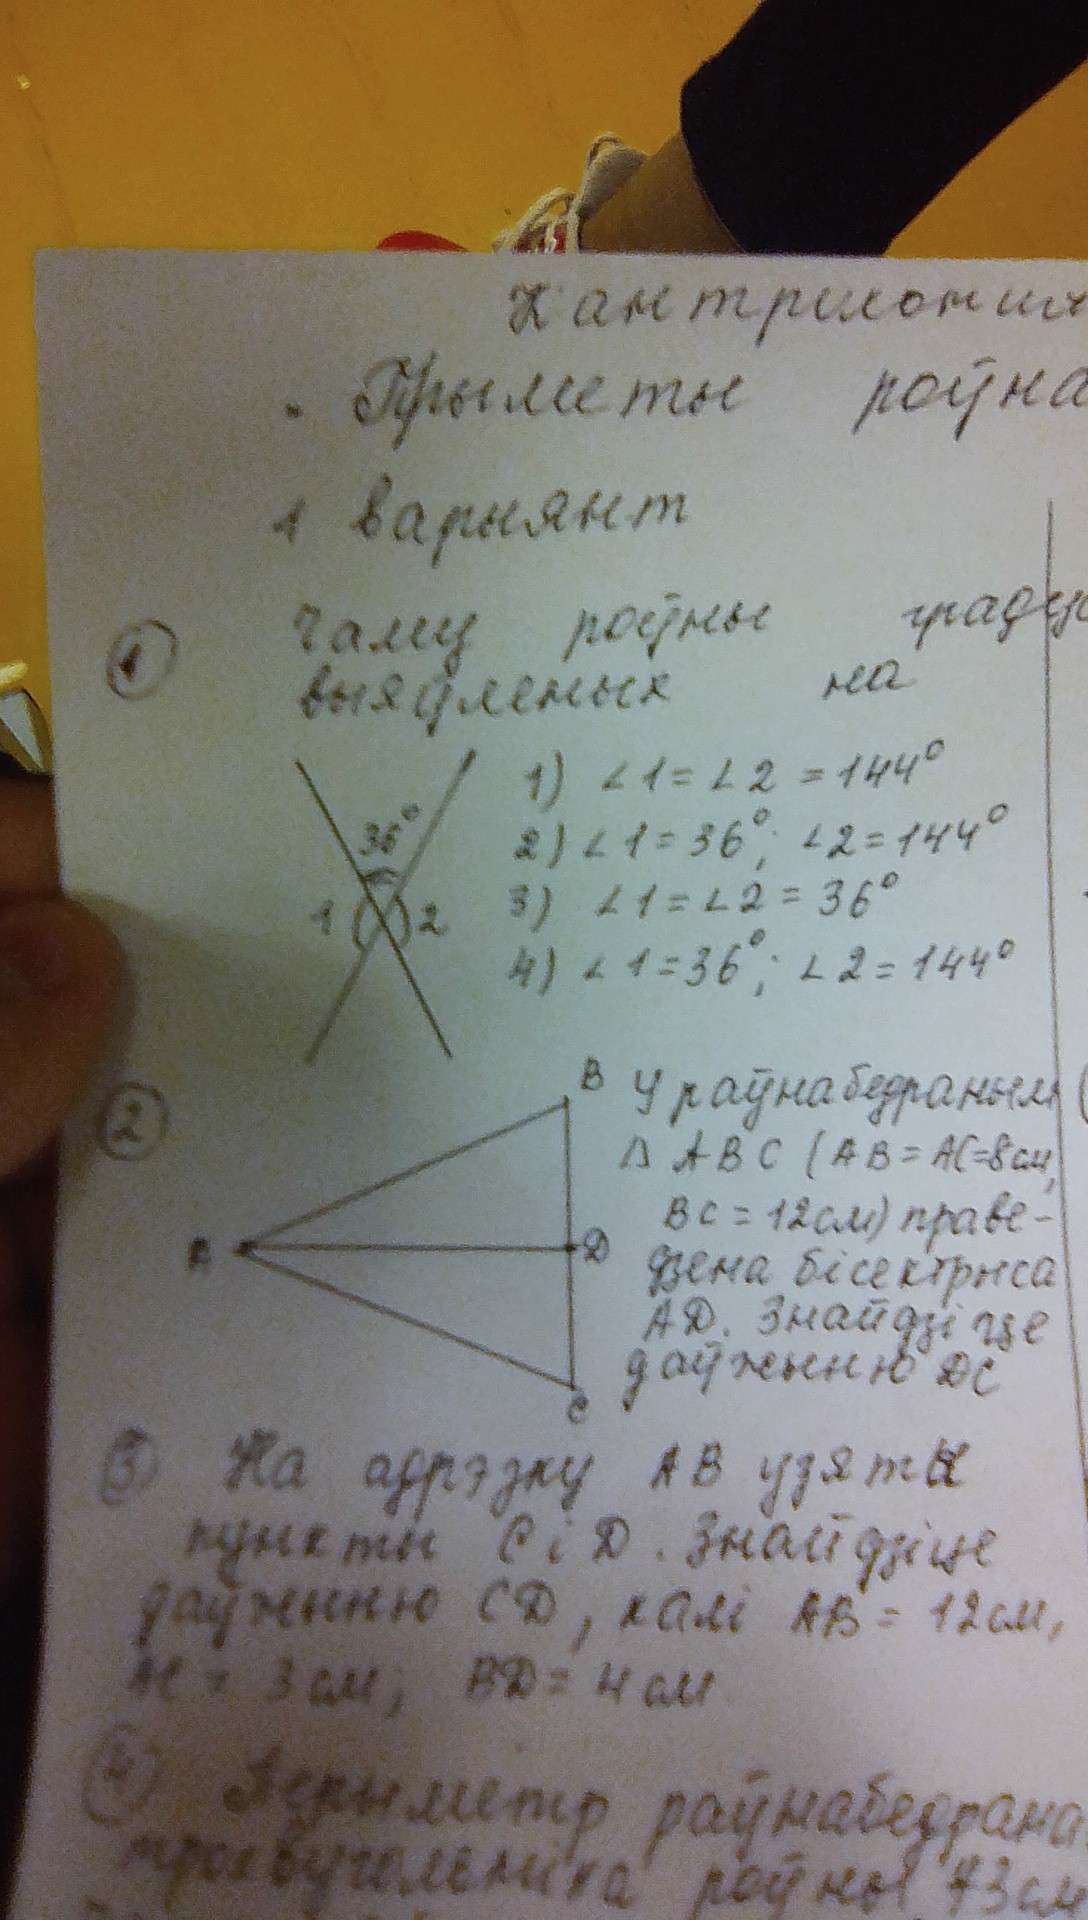 Кантрольная
Прыметы роўна
1 варыянт
① Чаму роўны граду
выяўленых на
36°
1 2
1) ∠1 = ∠2 = 144°
2) ∠1 = 36°; ∠2 = 144°
3) ∠1 = ∠2 = 36°
4) ∠1 = 36°; ∠2 = 144°
②
A B D C
У раўнабедраным
Δ ABC (AB = AC = 8см,
BC = 12см) праве-
дзена бісектрыса
AD. Знайдзіце
даўжыню DC
③ На адрэзку AB узяты
пункты C і D. Знайдзіце
даўжыню CD, калі AB = 12см,
AC = 3см; BD = 4см
④ Перыметр раўнабедрана
трохвугольніка роўны 43см